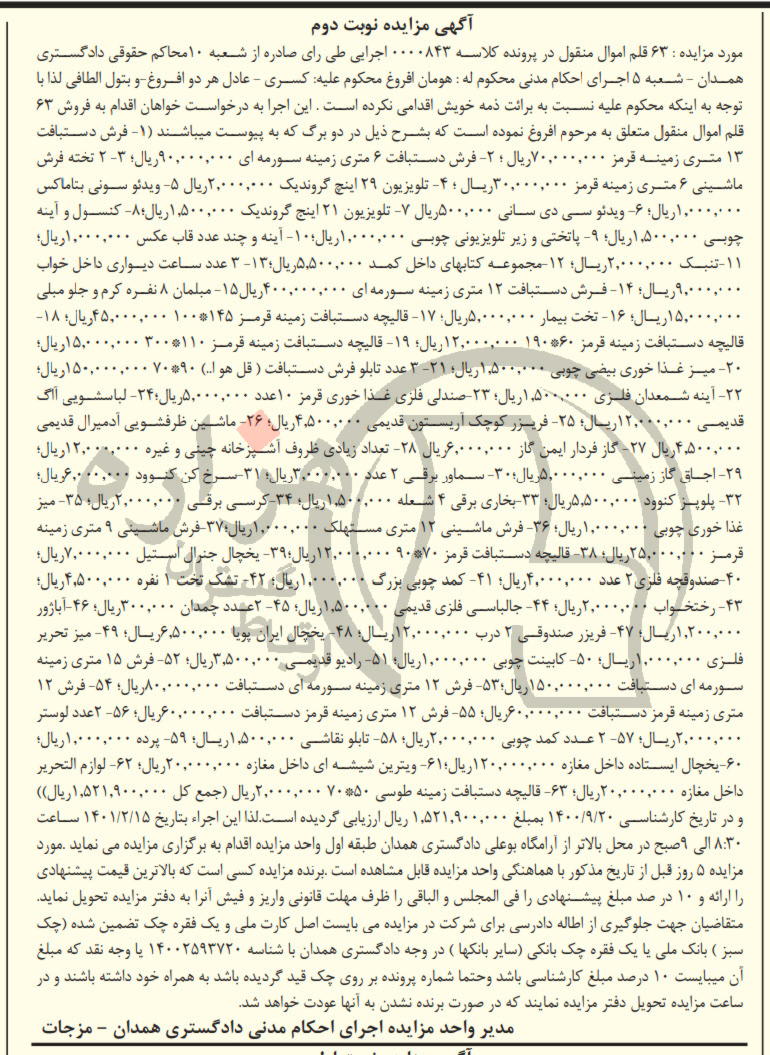 آگهی مزایده نوبت دوم
مورد مزایده : ۶۳ قلم اموال منقول در پرونده کلاسه ۰۰۰۰۸۴۳ اجرایی طی رای صادره از شعبه ۱۰محاکم حقوقی دادگستری
همدان - شعبه ۵ اجرای احکام مدنی محکوم له : هومان افروغ محکوم علیه: کسری - عادل هر دو افروغ-و بتول الطافی لذا با
توجه به اینکه محکوم علیه نسبت به برائت ذمه خویش اقدامی نکرده است . این اجرا به درخواست خواهان اقدام به فروش ۶۳
قلم اموال منقول متعلق به مرحوم افروغ نموده است که بشرح ذیل در دو برگ که به پیوست میباشند (۱- فرش دستبافت
۱۳ متری زمینه قرمز ۷۰,۰۰۰,۰۰۰ریال ؛ ۲- فرش دستبافت ۶ متری زمینه سورمه ای ۹۰,۰۰۰,۰۰۰ریال؛ ۳- ۲ تخته فرش
ماشینی ۶ متری زمینه قرمز ۳۰,۰۰۰,۰۰۰ریال ؛ ۴- تلویزیون ۲۹ اینچ گروندیک ۲,۰۰۰,۰۰۰ریال ۵- ویدئو سونی بتاماکس
۱,۰۰۰,۰۰۰ریال؛ ۶- ویدئو سی دی سانی ۵۰۰,۰۰۰ریال ۷- تلویزیون ۲۱ اینچ گروندیک ۱,۵۰۰,۰۰۰ریال؛۸- کنسول و آینه
چوبی ۱,۵۰۰,۰۰۰ریال؛ ۹- پاتختی و زیر تلویزیونی چوبی ۱,۰۰۰,۰۰۰ریال؛۱۰- آینه و چند عدد قاب عکس ۱,۰۰۰,۰۰۰ریال؛
۱۱-تنبک ۲,۰۰۰,۰۰۰ریال؛ ۱۲-مجموعه کتابهای داخل کمد ۵,۵۰۰,۰۰۰ریال؛۱۳- ۳ عدد ساعت دیواری داخل خواب
۹,۰۰۰,۰۰۰ریال؛ ۱۴- فرش دستبافت ۱۲ متری زمینه سورمه ای ۴۰۰,۰۰۰,۰۰۰ریال۱۵- مبلمان ۸ نفره کرم و جلو مبلی
۱۵,۰۰۰,۰۰۰ریال؛ ۱۶- تخت بیمار ۵,۰۰۰,۰۰۰ریال؛ ۱۷- قالیچه دستبافت زمینه قرمز ۱۴۵*۱۰۰ ۴۵,۰۰۰,۰۰۰ریال؛ ۱۸-
قالیچه دستبافت زمینه قرمز ۶۰*۱۹۰ ۱۲,۰۰۰,۰۰۰ریال؛ ۱۹- قالیچه دستبافت زمینه قرمز ۱۱۰*۳۰۰ ۱۵,۰۰۰,۰۰۰ریال؛
۲۰- میز غذا خوری بیضی چوبی ۱,۵۰۰,۰۰۰ریال؛ ۲۱- ۳ عدد تابلو فرش دستبافت ( قل هو ا..) ۹۰*۷۰ ۱۵۰,۰۰۰,۰۰۰ریال؛
۲۲- آینه شمعدان فلزی ۱,۵۰۰,۰۰۰ریال؛ ۲۳-صندلی فلزی غذا خوری قرمز ۱۰عدد ۵,۰۰۰,۰۰۰ریال؛۲۴- لباسشویی آاگ
قدیمی ۱۲,۰۰۰,۰۰۰ریال؛ ۲۵- فریزر کوچک آریستون قدیمی ۴,۵۰۰,۰۰۰ریال؛ ۲۶- ماشین ظرفشویی آدمیرال قدیمی
۴,۵۰۰,۰۰۰ریال ۲۷- گاز فردار ایمن گاز ۶,۰۰۰,۰۰۰ریال ۲۸- تعداد زیادی ظروف آشپزخانه چینی و غیره ۱۲,۰۰۰,۰۰۰ریال؛
۲۹- اجاق گاز زمینی ۵,۰۰۰,۰۰۰ریال؛۳۰- سماور برقی ۲ عدد ۳,۰۰۰,۰۰۰ریال؛ ۳۱-سرخ کن کنوود ۶,۰۰۰,۰۰۰ریال؛
۳۲- پلوپز کنوود ۵,۵۰۰,۰۰۰ریال؛ ۳۳-بخاری برقی ۴ شعله ۱,۵۰۰,۰۰۰ریال؛ ۳۴-کرسی برقی ۲,۰۰۰,۰۰۰ریال؛۳۵- میز
غذا خوری چوبی ۱,۰۰۰,۰۰۰ریال؛ ۳۶- فرش ماشینی ۱۲ متری مستهلک ۱,۰۰۰,۰۰۰ریال؛۳۷-فرش ماشینی ۹ متری زمینه
قرمز ۲۵,۰۰۰,۰۰۰ریال؛ ۳۸- قالیچه دستبافت قرمز ۷۰*۹۰ ۱۲,۰۰۰,۰۰۰ریال؛۳۹- یخچال جنرال استیل ۷,۰۰۰,۰۰۰ریال؛
۴۰-صندوقچه فلزی۲ عدد ۴,۰۰۰,۰۰۰ریال؛ ۴۱- کمد چوبی بزرگ ۱,۰۰۰,۰۰۰ریال؛ ۴۲- تشک تخت ۱ نفره ۴,۵۰۰,۰۰۰ریال؛
۴۳- رختخواب ۲,۰۰۰,۰۰۰ریال؛ ۴۴- جالباسی فلزی قدیمی ۱,۵۰۰,۰۰۰ریال؛ ۴۵- ۲عدد چمدان ۳۰۰,۰۰۰ریال؛ ۴۶-آباژور
۱,۲۰۰,۰۰۰ریال؛ ۴۷- فریزر صندوقی ۲ درب ۱۲,۰۰۰,۰۰۰ریال؛ ۴۸- یخچال ایران پویا ۶,۵۰۰,۰۰۰ریال؛ ۴۹- میز تحریر
فلزی ۱,۰۰۰,۰۰۰ریال؛ ۵۰- کابینت چوبی ۱,۰۰۰,۰۰۰ریال؛ ۵۱- رادیو قدیمی ۳,۵۰۰,۰۰۰ریال؛ ۵۲- فرش ۱۵ متری زمینه
سورمه ای دستبافت ۱۵۰,۰۰۰,۰۰۰ریال؛۵۳- فرش ۱۲ متری زمینه سورمه ای دستبافت ۸۰,۰۰۰,۰۰۰ریال؛ ۵۴- فرش ۱۲
متری زمینه قرمز دستبافت ۶۰,۰۰۰,۰۰۰ریال؛ ۵۵- فرش ۱۲ متری زمینه قرمز دستبافت ۶۰,۰۰۰,۰۰۰ریال؛ ۵۶- ۲عدد لوستر
۲,۰۰۰,۰۰۰ریال؛ ۵۷- ۲ عدد کمد چوبی ۲,۰۰۰,۰۰۰ریال؛ ۵۸- تابلو نقاشی ۱,۵۰۰,۰۰۰ریال؛ ۵۹- پرده ۱,۰۰۰,۰۰۰ریال؛
۶۰-یخچال ایستاده داخل مغازه ۱۲۰,۰۰۰,۰۰۰ریال؛۶۱- ویترین شیشه ای داخل مغازه ۲۰,۰۰۰,۰۰۰ریال؛ ۶۲- لوازم التحریر
داخل مغازه ۲۰,۰۰۰,۰۰۰ریال؛ ۶۳- قالیچه دستبافت زمینه طوسی ۵۰*۷۰ ۲,۰۰۰,۰۰۰ریال (جمع کل ۱,۵۲۱,۹۰۰,۰۰۰ریال))
و در تاریخ کارشناسی ۱۴۰۰/۹/۲۰ بمبلغ ۱,۵۲۱,۹۰۰,۰۰۰ ریال ارزیابی گردیده است.لذا این اجراء بتاریخ ۱۴۰۱/۲/۱۵ ساعت
۸:۳۰ الی ۹صبح در محل بالاتر از آرامگاه بوعلی دادگستری همدان طبقه اول واحد مزایده اقدام به برگزاری مزایده می نماید .مورد
مزایده ۵ روز قبل از تاریخ مذکور با هماهنگی واحد مزایده قابل مشاهده است .برنده مزایده کسی است که بالاترین قیمت پیشنهادی
را ارائه و ۱۰ در صد مبلغ پیشنهادی را فی المجلس و الباقی را ظرف مهلت قانونی واریز و فیش آنرا به دفتر مزایده تحویل نماید.
متقاضیان جهت جلوگیری از اطاله دادرسی برای شرکت در مزایده می بایست اصل کارت ملی و یک فقره چک تضمین شده (چک
سبز ) بانک ملی یا یک فقره چک بانکی (سایر بانکها ) در وجه دادگستری همدان با شناسه ۱۴۰۰۲۵۹۳۷۲۰ یا وجه نقد که مبلغ
آن میبایست ۱۰ درصد مبلغ کارشناسی باشد وحتما شماره پرونده بر روی چک قید گردیده باشد به همراه خود داشته باشند و در
ساعت مزایده تحویل دفتر مزایده نمایند که در صورت برنده نشدن به آنها عودت خواهد شد.
مدیر واحد مزایده اجرای احکام مدنی دادگستری همدان - مزجات